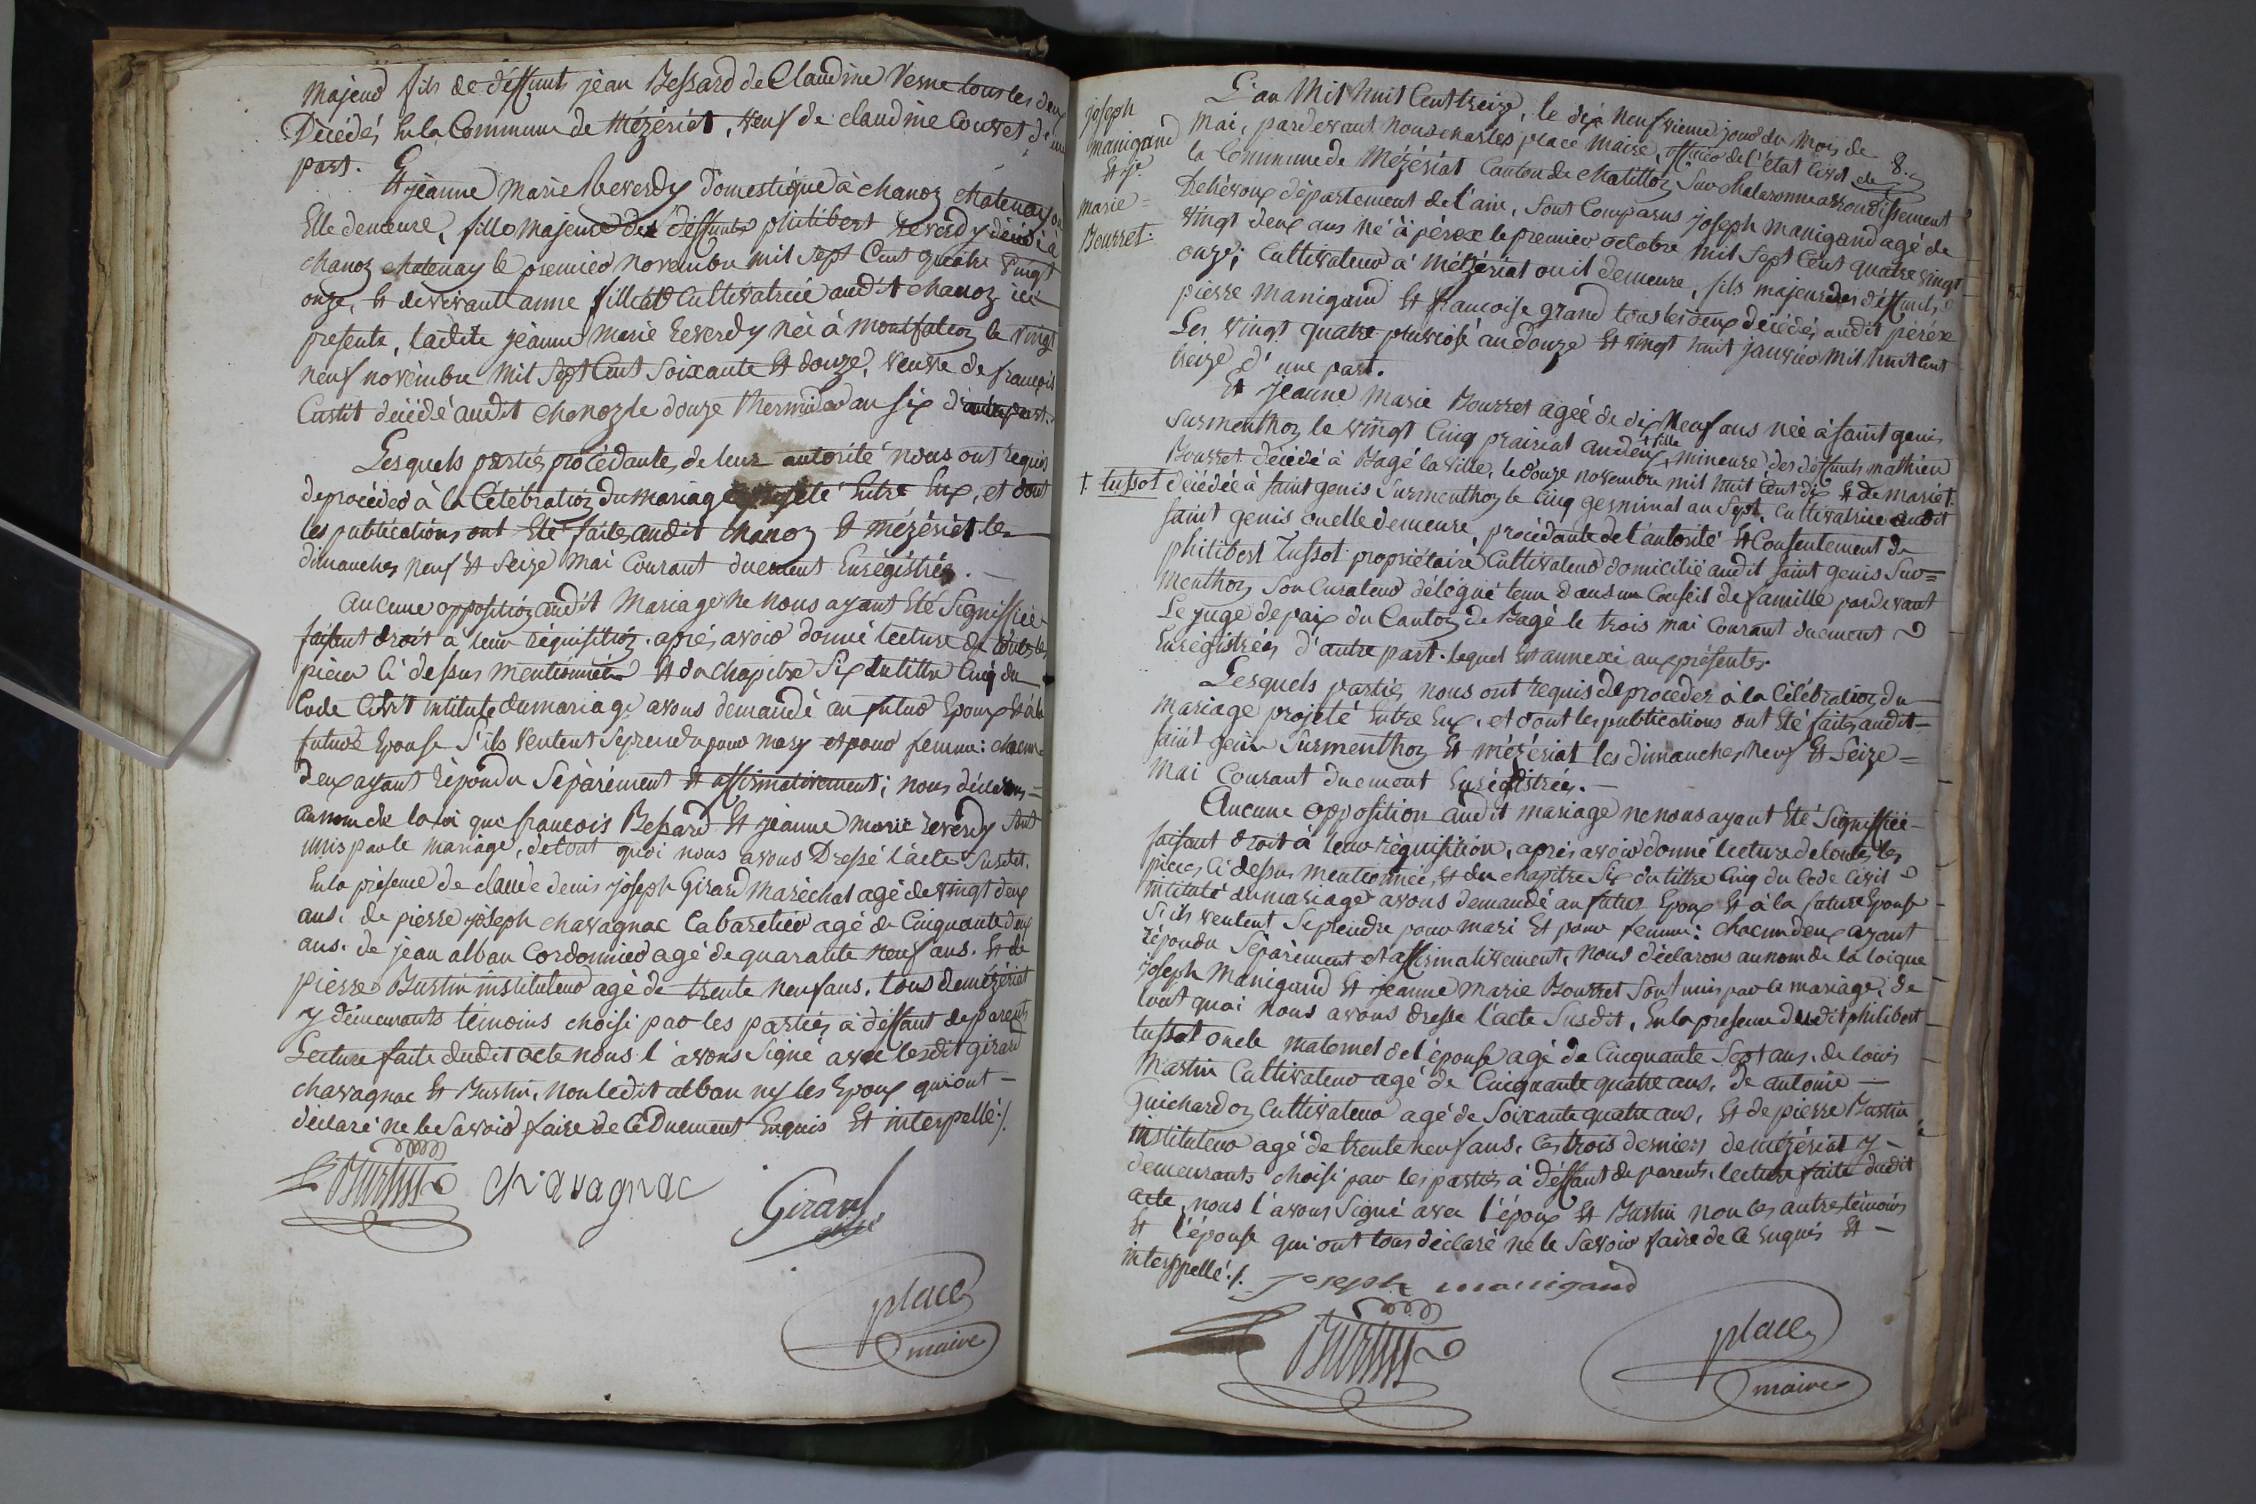 majeur fils de déffunts jean Bessard de Claudine Vesne tous les deux
Décédés En la Commune de Mézériat, veuf de claudine Couvet d'une
part.
Et jeanne Marie Reverdy domestique à chanoz chatenay où
Elle demeure, fille majeure des déffunts philibert Reverdy décédé à
chanoz chatenay le premier novembre mil sept Cent quatre vingt
onze, Et de vivante anne fillat Cultivatrice audit chanoz ici
presente, ladite jeanne Marie Reverdy née à Montfalcon le vingt
neuf novembre mil sept Cent soixante Et douze, veuve de françois
Custit décédé audit chanoz le douze thermidor an six d'autre part.
Lesquels partiés procédante de leur autorité nous ont requis
de procéder à la Célébration du mariage projeté Entre Eux, et dont
les publications ont Eté faites audit chanoz Et mézériat les
dimanches neuf Et seize Mai Courant duement Enrégistrées. —
aucune opposition audit Mariage ne nous ayant Eté Signiffiée
faisant droit à leur réquisition. après avoir donné lecture de toutes les
pièces Ci dessus mentionnées Et du chapitre Six du tittre Cinq du
Code Civil intitulé du mariage avons demandé au futur Epoux Et à la
future Epouse S'ils veulent se prendre pour mary et pour femme: chacun
d'eux ayant répondu Séparément Et affirmativement; nous déclarons
au nom de la loi que françois Bessard Et jeanne marie reverdy sont
unis par le mariage, de tout quoi nous avons Dressé l'acte Susdit.
En la présence de claude denis joseph Girard Maréchal agé de vingt deux
ans; de pierre joseph chavagnac Cabaretier agé de Cinquante deux
ans. de jean alban Cordonnier agé de quarante neuf ans. Et de
pierre Burtin instituteur agé de trente neuf ans. tous de mézériat
y demeurants temoins choisi par les partiés à déffaut de parents
Lecture faite dudit acte nous l'avons Signé avec lesdit girard
chavagnac Et Burtin. non ledit alban ny les Epoux qui ont —
déclaré ne le Savoir faire de Ce Duement Enquis Et interpellé./.
Burtin chavagnac Girard
place
maire
joseph
manigand
Et je.
marie =
Bourret.
8.
L'an Mil huit Cent treize, le dix neufvieme jour du Mois de
Mai, pardevant nous charles place Maire, officier de l'état Civil de
la Commune de Mézériat Canton de chatillon Sur chalaronne arrondissement
De trévoux département de l'ain, Sont Comparus joseph Manigand agé de
vingt deux ans né à pérex le premier octobre mil sept Cent quatre vingt
onze; Cultivateur à Mézériat ou il demeure, fils majeur des déffunts
pierre manigand Et françoise grand tous les deux décédés audit pérex
Les vingt quatre pluviose an douze Et vingt huit janvier mil huit Cent
treize d'une part.
Et Jeanne Marie Bourret agée de dix Neuf ans née à saint genis
Surmenthon le vingt Cinq prairial an deux, fille mineure des déffunts mathieu
Bourret décédé à Bagé la ville, le douze novembre mil huit Cent dix Et de marie †.
† tussot décédée à saint genis Surmenthon le Cinq germinal an Sept, Cultivatrice audit
saint genis ou elle demeure, procédante de l'autorité Et Consentement de
philibert Tussot propriétaire Cultivateur domicilié audit saint genis Sur=
menthon Son Curateur délégué tenu dans un Conseil de famille pardevant
Le juge de paix du Canton de Bagé le trois mai Courant duement
Enrégistrées d'autre part. lequel Est annexé aux présentes.
Lesquels partiés nous ont requis de procéder à la Célébration du
mariage projeté Entre Eux, et dont les publications ont Eté faites audit —
saint genis Surmenthon Et mézériat les dimanches Neuf Et Seize =
Mai Courant duement Enrégistrées. —
Aucune opposition audit mariage ne nous ayant Eté Signiffiée —
faisant droit à leur réquisition, après avoir donné lecture de toutes les
pièces Ci dessus mentionnées, Et du chapitre Six du tittre Cinq du Code Civil
intitulé du mariage avons demandé au futur Epoux Et à la future Epouse
S'ils veulent Se prendre pour mari Et pour femme: chacun d'eux ayant
répondu Séparément et affirmativement, nous déclarons au nom de la loi que
joseph Manigand Et jeanne Marie Bourret Sont unis par le mariage; de
tout quoi nous avons dressé l'acte Susdit, En la presence dudit philibert
tussot oncle maternel de l'épouse agé de Cinquante Sept ans. de louis
Martin Cultivateur agé de Cinquante quatre ans, de antoine —
Guichardon Cultivateur agé de Soixante quatre ans, Et de pierre Burtin
instituteur agé de trente neuf ans. Les trois derniers de mézériat y —
demeurants choisi par les partiés à déffaut de parents. lecture faite dudit
acte, nous l'avons Signé avec l'époux Et Burtin non les autres témoins
Et l'épouse qui ont tous déclaré ne le Savoir faire de Ce Enquis Et —
interpellé./. joseph manigand
Burtin
place
maire